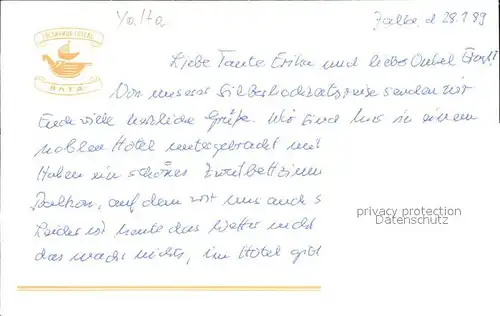 Yalta
Jalta, d 28.1.89
ЯЛТА
Liebe Tante Erika und lieber Onkel Ernst!
Von unserer Silberhochzeitsreise senden wir
Euch viele herzliche Grüße. Wir sind hier in einem
noblen Hotel untergebracht und
haben ein schönes Zweibettzimm
Balkon, auf dem wir uns auch s
Leider ist heute das Wetter nicht
das macht nichts, im Hotel gibt
privacy protection
Datenschutz